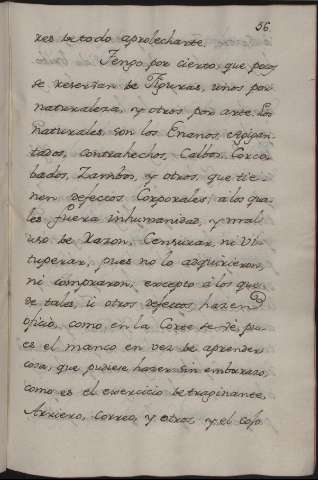 56
res de todo aprolechante.
Tengo por cierto, que pocos
se reservan de Figuras, unos por
naturaleza, y otros por arte. Los
Naturales, son los Enanos, agigan-
tados, contrahechos, Calbos, Corco-
bados, Zambos, y otros, que tie-
nen defectos Corporales; á los qua-
les, fuera inhumanidad, y mal
uso de razon, Censurar, ni Vi-
tuperar, pues no lo adquirieron,
ni compraron, excepto á los que
de tales, ú otros defectos hazen
oficio, como, en la Corte se ve, pu-
es el manco en vez de aprender
cosa, que pudiese hazer sin embarazo,
como es el exercicio de traginante,
Arriero, Correo, y otros, y el cojo